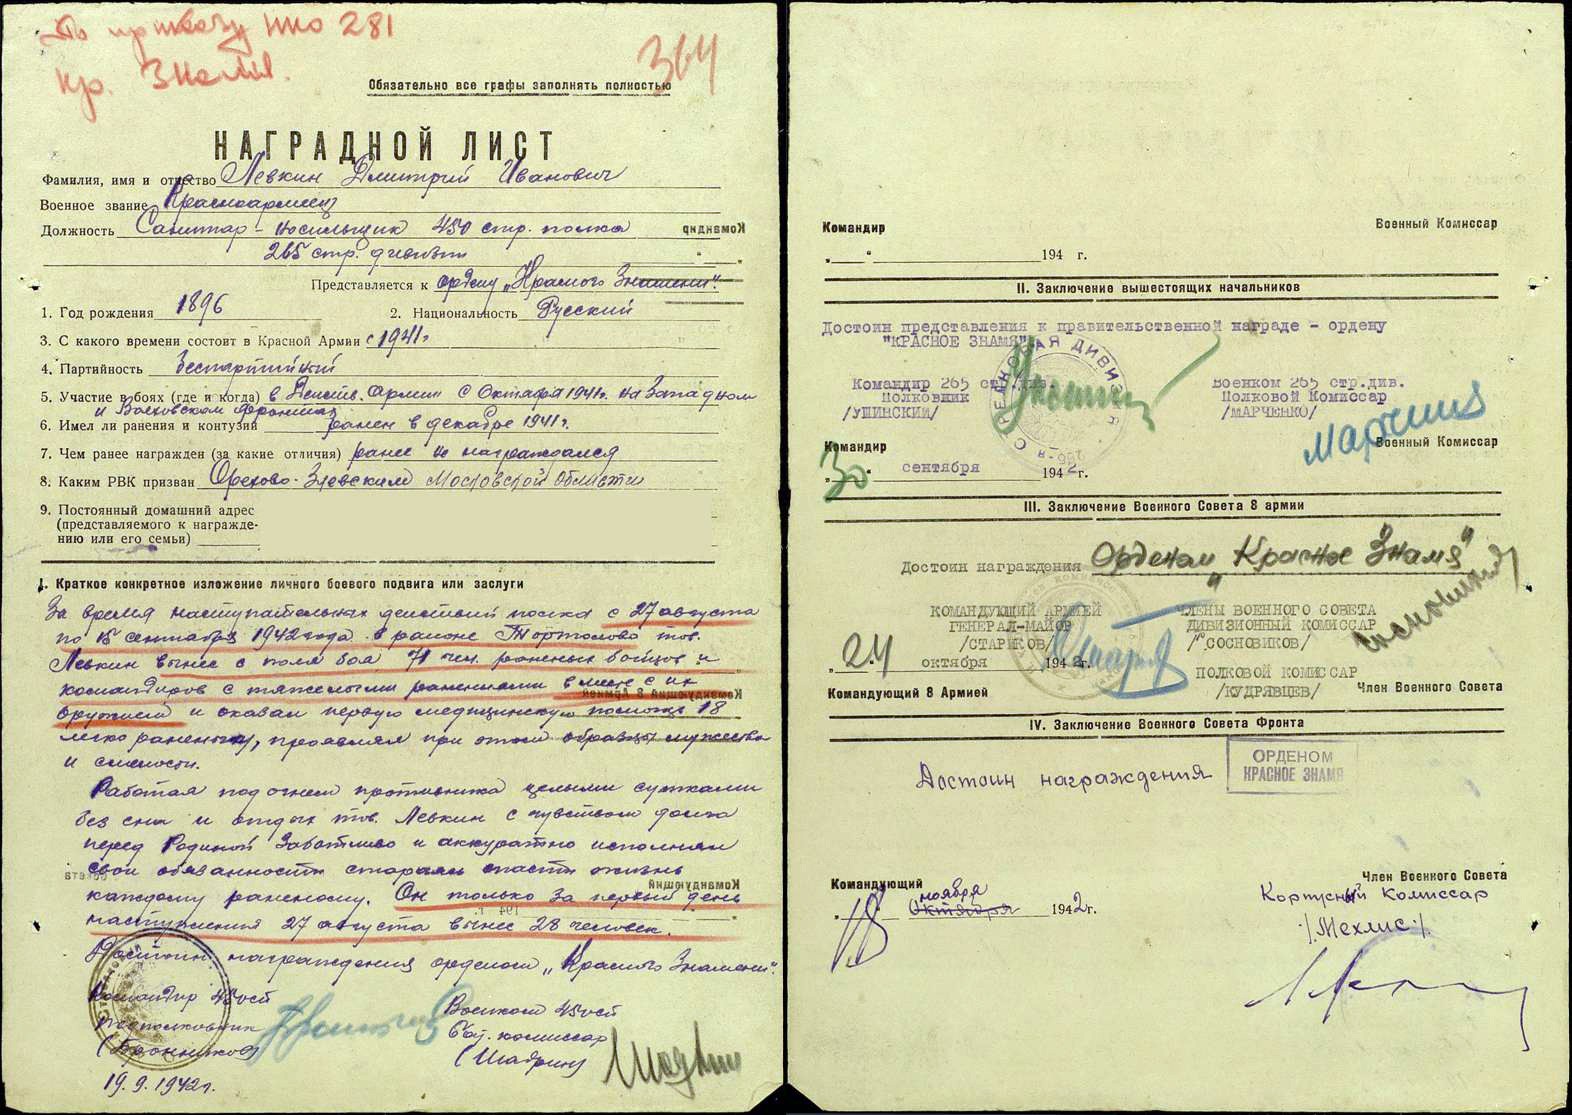 По приказу НКО 281
кр. Знамя.
364
Обязательно все графы заполнять полностью
НАГРАДНОЙ ЛИСТ
Фамилия, имя и отчество Левкин Дмитрий Иванович
Военное звание Красноармеец
Должность Санитар-носильщик 450 стр. полка
265 стр. дивизии
Представляется к ордену „Красного Знамени".
1. Год рождения 1896 2. Национальность Русский
3. С какого времени состоит в Красной Армии с 1941 г
4. Партийность Беспартийный
5. Участие в боях (где и когда) в Действ. Армии с Октября 1941 г. на Западном
и Волховском фронтах
6. Имел ли ранения и контузии ранен в декабре 1941 г.
7. Чем ранее награжден (за какие отличия) ранее не награждался
8. Каким РВК призван Орехово-Зуевским Московской области
9. Постоянный домашний адрес
(представляемого к награжде-
нию или его семьи)
I. Краткое конкретное изложение личного боевого подвига или заслуги
За время наступательных действий полка с 27 августа
по 15 сентября 1942 года в районе Тортолово тов.
Левкин вынес с поля боя 71 чел. раненых бойцов и
командиров с тяжелыми ранениями вместе с их
оружием и оказал первую медицинскую помощь 18
легко раненым, проявляя при этом образцы мужества
и смелости.
Работая под огнем противника целыми сутками
без сна и отдых тов. Левкин с чувством долга
перед Родиной заботливо и аккуратно исполнял
свои обязанности стараясь спасти жизнь
каждому раненому. Он только за первый день
наступления 27 августа вынес 28 человек.
Достоин награждения орденом „Красного Знамени".
Командир 450сп
подполковник
(Бронников)
19.9.1942г.
Военком 450сп
Бат. комиссар
(Шадрин)
Шадрин
Командир Военный Комиссар
„ " 194 г.
II. Заключение вышестоящих начальников
Достоин представления к правительственной награде - ордену
"КРАСНОЕ ЗНАМЯ"
Командир 265 стр.див. Военком 265 стр.див.
Полковник Полковой Комиссар
/УШИНСКИЙ/ /МАРЧЕНКО/
Командир Военный Комиссар
30 " сентября 1942 г.
III. Заключение Военного Совета 8 армии
Достоин награждения Орденом „Красное Знамя"
КОМАНДУЮЩИЙ АРМИЕЙ ЧЛЕНЫ ВОЕННОГО СОВЕТА
ГЕНЕРАЛ-МАЙОР ДИВИЗИОННЫЙ КОМИССАР
/СТАРИКОВ/ /СОСНОВИКОВ/
„24 октября 1942 г.
ПОЛКОВОЙ КОМИССАР
/КУДРЯВЦЕВ/
Командующий 8 Армией Член Военного Совета
IV. Заключение Военного Совета Фронта
Достоин награждения ОРДЕНОМ
КРАСНОЕ ЗНАМЯ
Командующий Член Военного Совета
ноября
Октября 1942 г.
Корпусный Комиссар
/Мехлис/